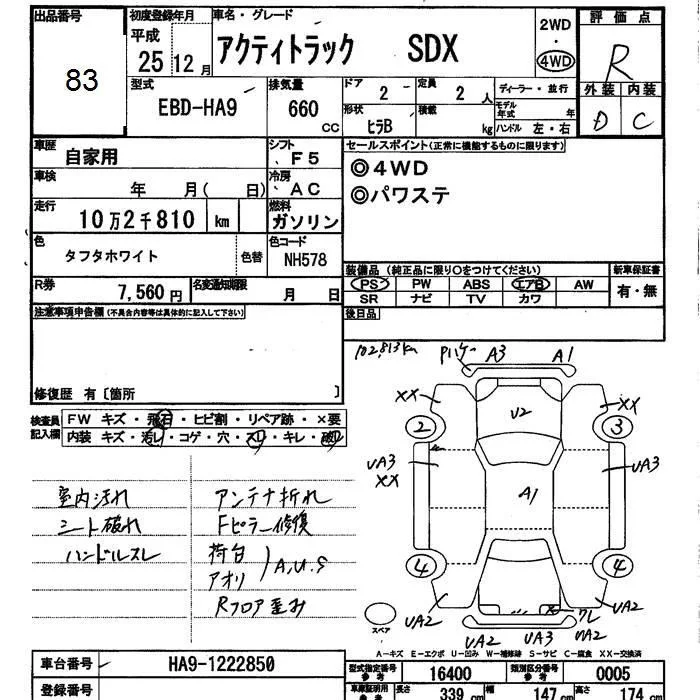 出品番号 83
初度登録年月 平成 25 12月
車名・グレード アクティトラック SDX
2WD
4WD
評価点 R
外装 内装
D C
型式 EBD-HA9
排気量 660 CC
ドア 2 -
定員 2 人
ディーラー・並行
モデル年式 年
形状 ヒラB
積載 kg
ハンドル 左・右
車歴 自家用
シフト F5
車検 年 月( 日)
冷房 AC
走行 10万2千810 km
燃料 ガソリン
色 タフタホワイト
色替
色コード NH578
R券 7,560円
名変通知期限 月 日
セールスポイント(正常に機能するものに限ります)
◎4WD
◎パワステ
装備品 (純正品に限り○をつけてください)
新車保証書
PS PW ABS エアB AW
SR ナビ TV カワ
有・無
後日品
注意事項申告欄(不具合内容等は具体的に記入して下さい)
修復歴 有〔箇所 〕
検査員記入欄
FW キズ・飛石・ヒビ割・リペア跡・×要
内装 キズ・汚レ・コゲ・穴・スレ・キレ・破レ
室内汚れ
シート破れ
ハンドルスレ
アンテナ折れ
Fピラー修復
荷台
アオリ
A,U,S
Rフロア歪み
102,813km
A3 A1
XX XX
U2
2 3
UA3 XX
UA3
A1
4 4
UA2 UA2
ワレ
UA2 UA3 UA2
スペア
A-キズ E-エクボ U-凹み W-補修跡 S-サビ C-腐食 XX-交換済
車台番号 HA9-1222850
登録番号
型式指定番号 参考 16400
類別区分番号 参考 0005
車庫証明用 参考
長さ 339 cm
幅 147 cm
高さ 174 cm